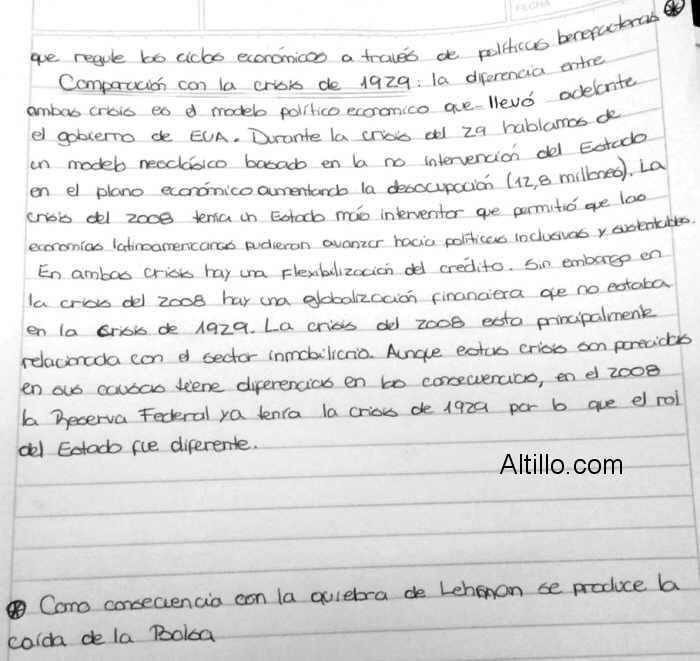 FECHA
que regule los ciclos económicos a través de políticas benefactoras ⊛
Comparación con la crisis de 1929: la diferencia entre
ambas crisis es el modelo político economico que llevó adelante
el gobierno de EUA. Durante la crisis del 29 hablamos de
un modelo neoclásico basado en la no intervención del Estado
en el plano económico aumentando la desocupación (12,8 millones). La
crisis del 2008 tenía un Estado más interventor que permitió que las
economías latinoamericanas pudieran avanzar hacia políticas inclusivas y sustentables.
En ambas crisis hay una flexibilización del crédito. Sin embargo en
la crisis del 2008 hay una globalización financiera que no estaba
en la crisis de 1929. La crisis del 2008 esta principalmente
relacionada con el sector inmobiliario. Aunque estas crisis son parecidas
en sus causas tiene diferencias en las consecuencias, en el 2008
la Reserva Federal ya tenía la crisis de 1929 por lo que el rol
del Estado fue diferente.
Altillo.com
⊛ Como consecuencia con la quiebra de Lehman se produce la
caída de la Bolsa